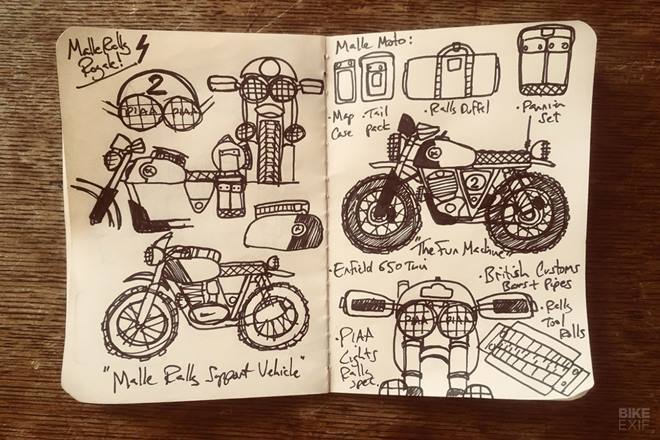 Malle Rally
Royale!
2
PIAA PIAA
"Malle Rally Support Vehicle"
Malle Moto:
• Map
Case
• Tail
pack
• Rally Duffel
• Pannier
Set
2
"The Fun Machine"
• Enfield 650 Twin
• British Customs
Bars + Pipes
• Rally
Tool
Rolls
• PIAA
Lights
Rally
spec.
PIAA PIAA
BIKE
EXIF